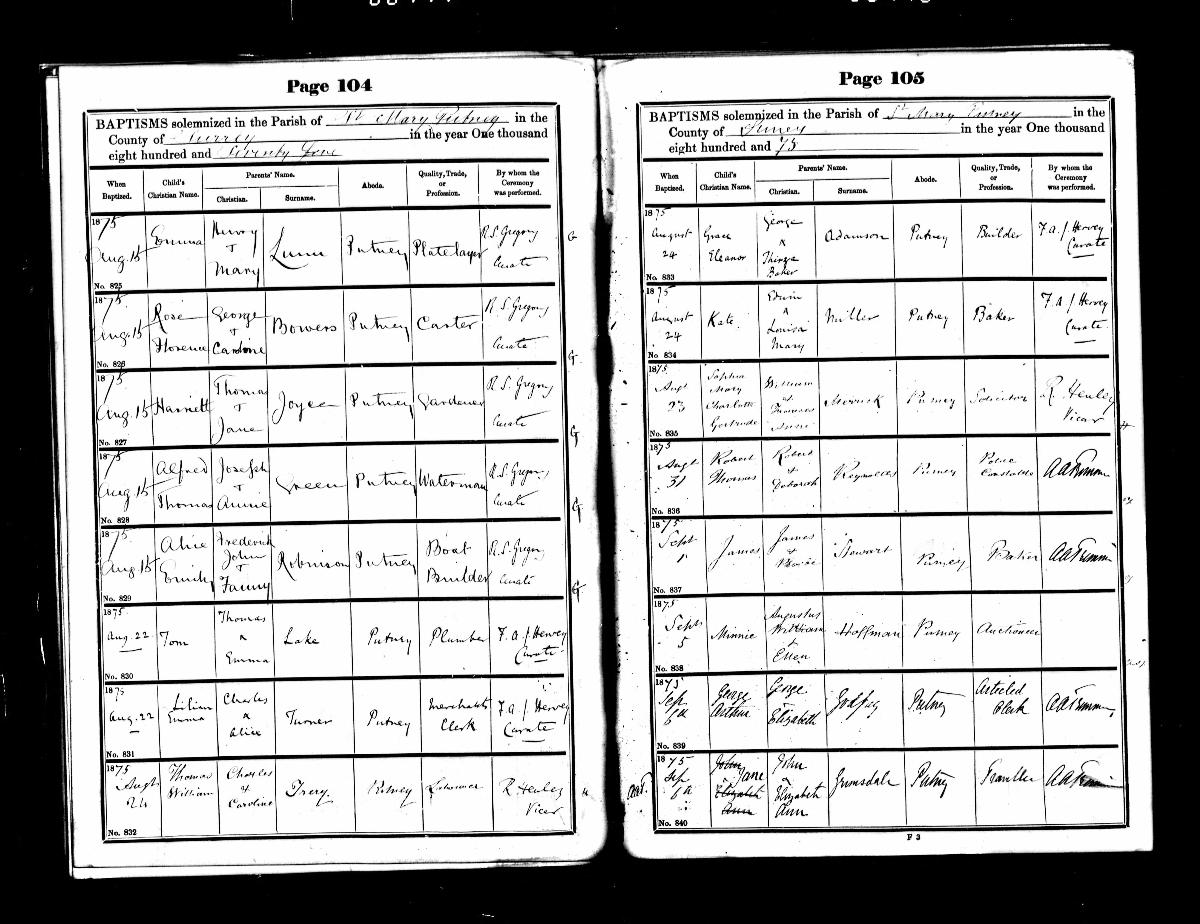 Page 104
BAPTISMS solemnized in the Parish of St Mary Putney in the
County of Surrey in the year One thousand
eight hundred and Seventy five
When Baptized. Child's Christian Name. Parents' Name. Christian. Surname. Abode. Quality, Trade, or Profession. By whom the Ceremony was performed.
1875 Aug. 15 Emma Henry + Mary Lunn Putney Platelayer R. S. Gregory Curate
No. 825
1875 Aug. 15 Rose Florence George + Caroline Bowers Putney Carter R. S. Gregory Curate
No. 826
1875 Aug. 15 Harriett Thomas + Jane Joyce Putney Gardener R. S. Gregory Curate
No. 827
1875 Aug 15 Alfred Thomas Joseph + Annie Green Putney Waterman R. S. Gregory Curate
No. 828
1875 Aug 15 Alice Emily Frederick John + Fanny Robinson Putney Boat Builder R. S. Gregory Curate
No. 829
1875. Aug. 22 Tom Thomas & Emma Lake Putney Plumber F. A. J Hervey Curate
No. 830
1875 Aug. 22 Lilian Emma Charles & Alice Turner Putney Merchants Clerk F. A. J Hervey Curate
No. 831
1875 Augt 24 Thomas William Charles & Caroline Putney Labourer R Henley Vicar
No. 832
Page 105
BAPTISMS solemnized in the Parish of St Mary Putney in the
County of Surrey in the year One thousand
eight hundred and 75
When Baptized. Child's Christian Name. Parents' Name. Christian. Surname. Abode. Quality, Trade, or Profession. By whom the Ceremony was performed.
1875 August 24 Grace Eleanor George & Thirza Baker Adamson Putney Builder F. A. J Hervey Curate
No. 833
1875 August 24 Kate Edwin & Louisa Mary Miller Putney Baker F. A. J Hervey Curate
No. 834
1875 Augt 23 Sophia Mary Charlotte Gertrude William & Frances Annie Merrick Putney Solicitor R. Henley Vicar
No. 835
1875 Augt 31 Robert Thomas Robert & Deborah Reynolds Putney Police Constable
No. 836
1875 Sept 1 James James & Stewart Putney Baker
No. 837
1875 Sept 5 Minnie Augustus William & Ellen Hoffman Putney Auctioneer
No. 838
1875 Sept George Arthur George & Elizabeth Godfrey Putney Articled Clerk
No. 839
1875 Sep John Jane Elizabeth Ann John & Elizabeth Ann Grimsdale Putney Traveller
No. 840
F 3